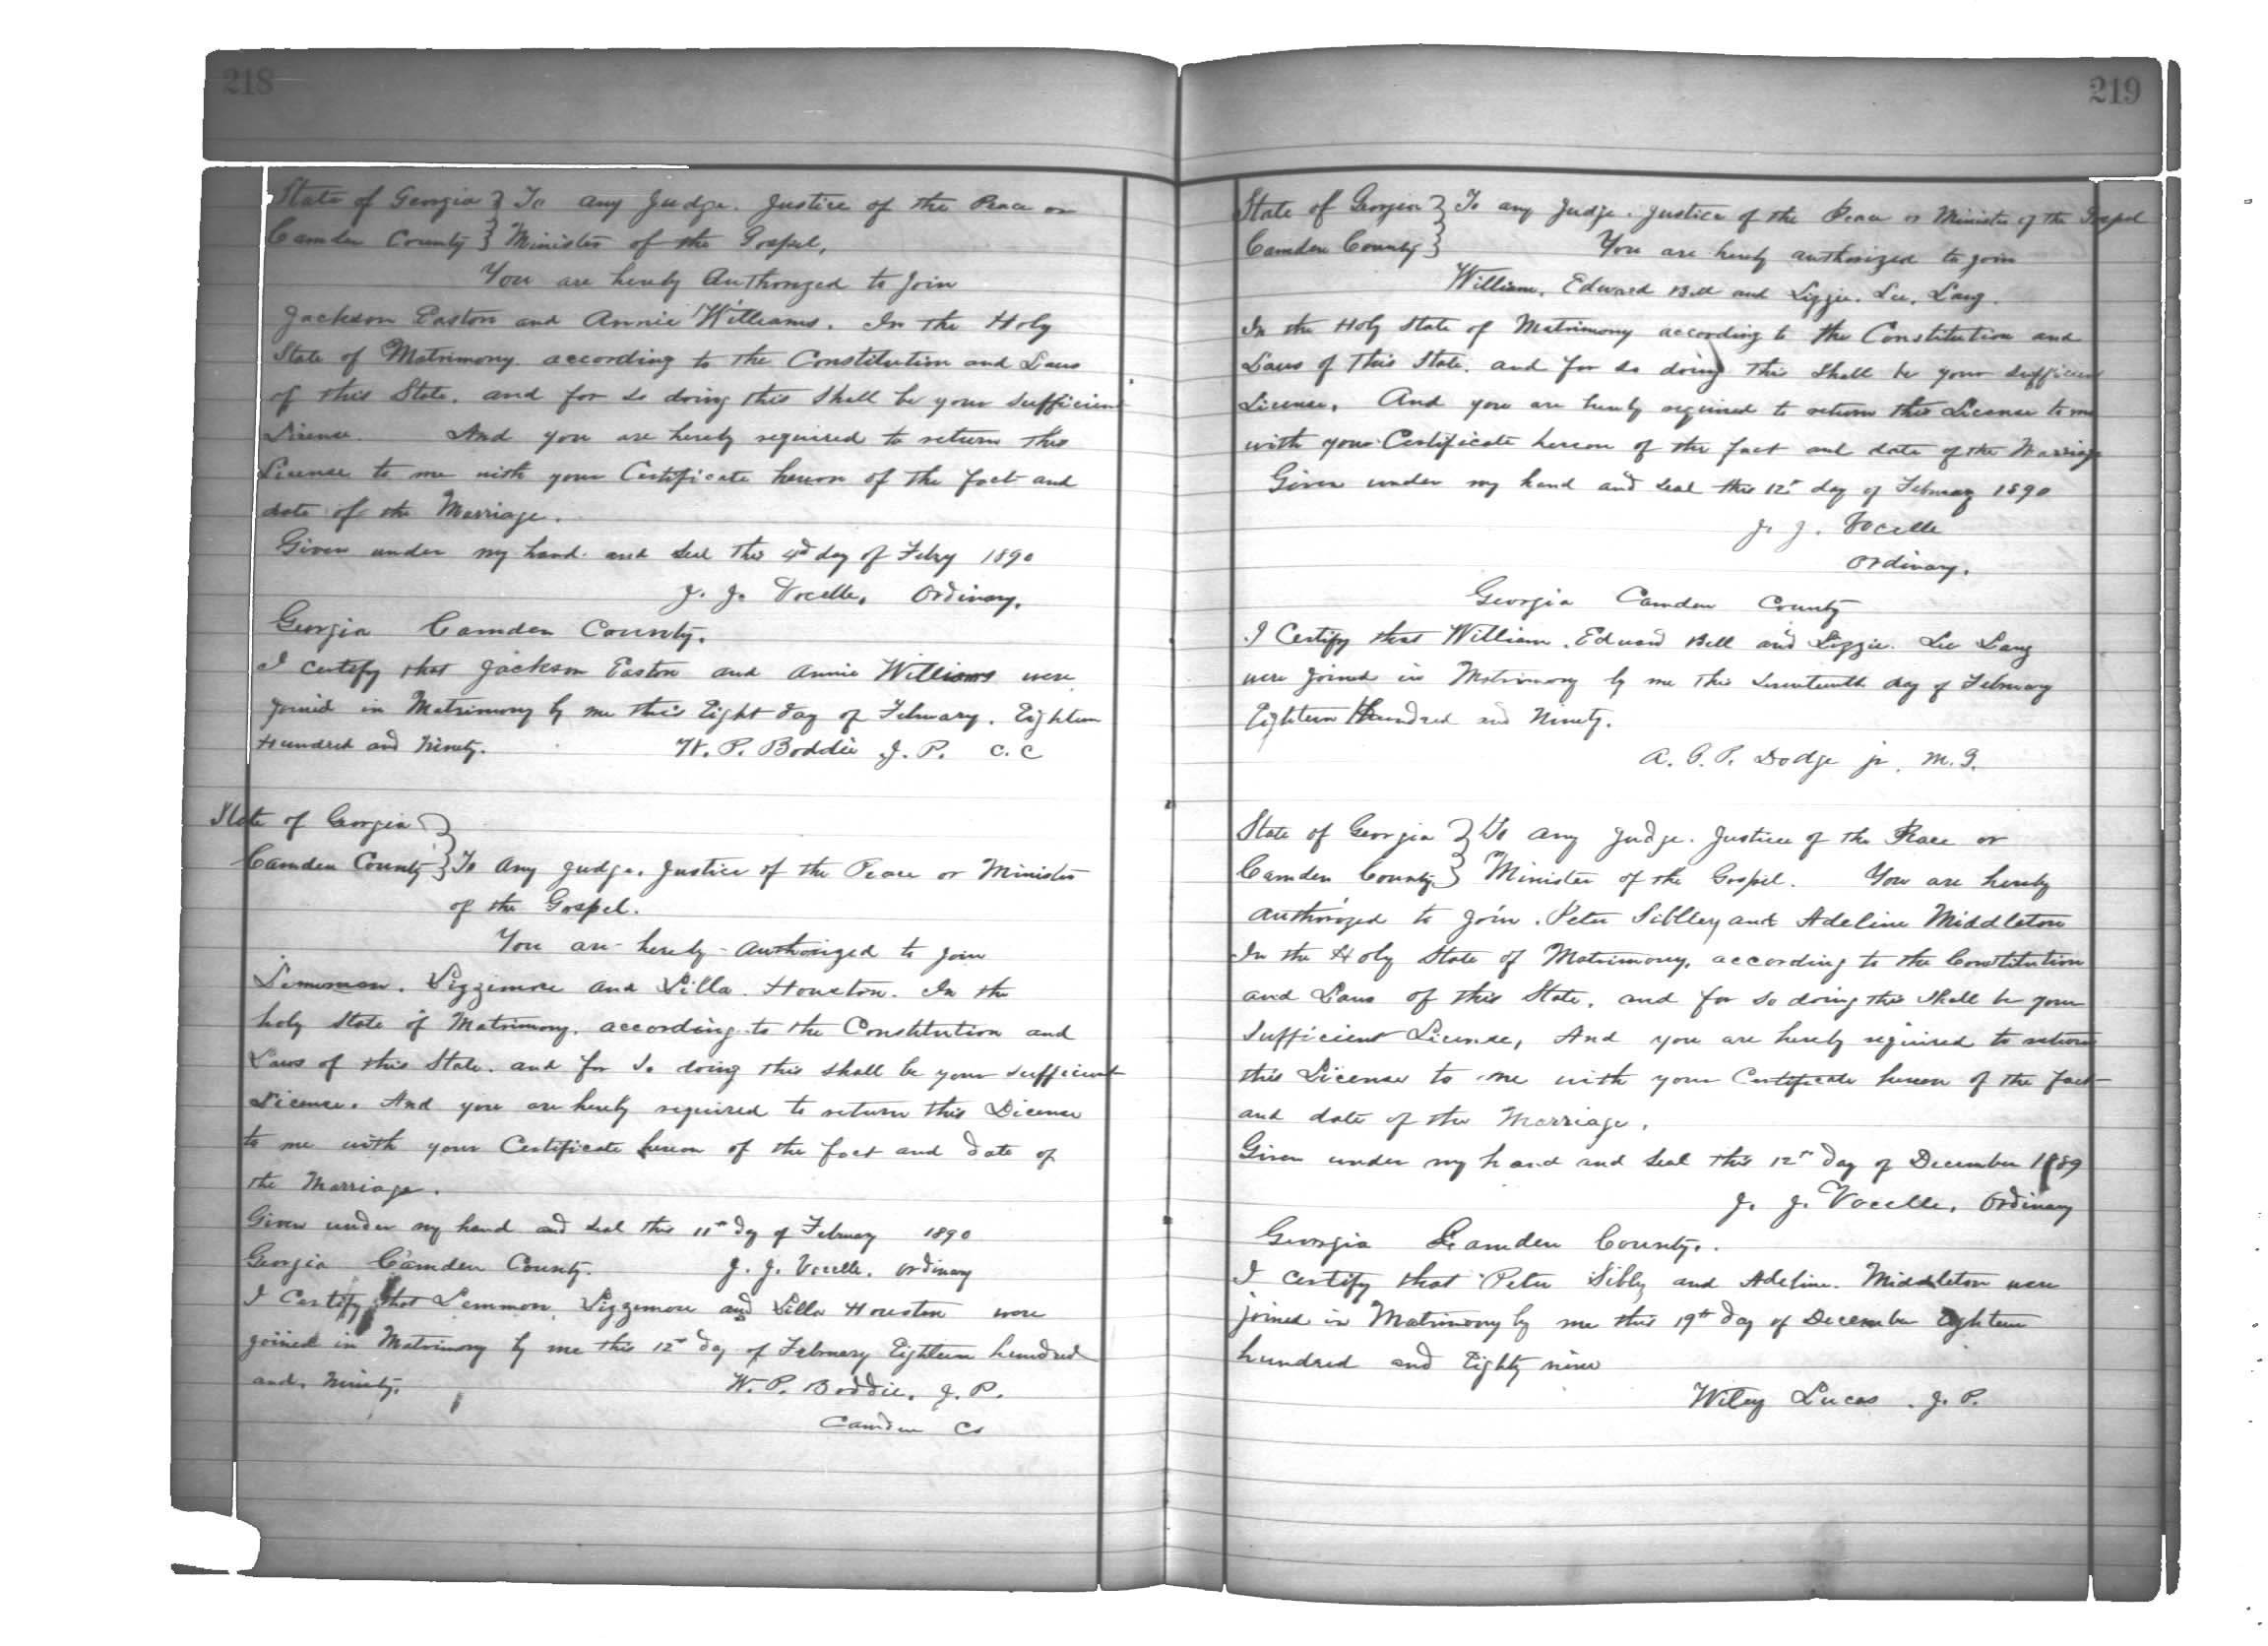 218
State of Georgia } To any Judge. Justice of the Peace or
Camden County } Minister of the Gospel.
You are hereby Authorized to Join
Jackson Easton and Annie Williams. In the Holy
State of Matrimony. according to the Constitution and Laws
of this State. and for so doing this shall be your sufficient
License. And you are hereby required to return this
License to me with your Certificate hereon of the fact and
date of the Marriage.
Given under my hand and seal this 4d day of Febry 1890
J. J. Vocelle, Ordinary.
Georgia Camden County.
I certify that Jackson Easton and Annie Williams were
joined in Matrimony by me this Eight day of February. Eighteen
Hundred and Ninety. W. P. Boddie J. P. C. C
State of Georgia }
Camden County } To Any Judge. Justice of the Peace or Minister
of the Gospel.
You are hereby authorized to join
Lizzimore and Lilla. Houston. In the
holy State of Matrimony. according to the Constitution and
Laws of this State. and for So doing this shall be your sufficient
License. And you are hereby required to return this License
to me with your Certificate hereon of the fact and date of
the Marriage.
Given under my hand and seal this 11th dy of February 1890
Georgia Camden County. J. J. Vocelle. Ordinary
I Certify that Lemmon Lizzemore and Lilla Houston were
joined in Matrimony by me this 12th day of February Eighteen hundred
and, Ninety. W. P. Boddie, J. P.
Camden Co
219
State of Georgia } To any Judge. Justice of the Peace or Minister of the Gospel
Camden County } You are hereby authorized to join
William. Edward Bell and Lizzie. Lee. Lang.
In the Holy State of Matrimony according to the Constitution and
Laws of this State. and for so doing this shall be your sufficient
License. And you are hereby required to return this License to me
with your Certificate hereon of the fact and date of the Marriage
Given under my hand and seal this 12th day of February 1890
J. J. Vocelle
Ordinary.
Georgia Camden County
I Certify that William. Edward Bell and Lizzie. Lee Lang
were joined in Matrimony by me this Seventeenth day of February
Eighteen Hundred and Ninety.
A. G. P. Dodge jr. M. G.
State of Georgia } To any Judge. Justice of the Peace or
Camden County } Minister of the Gospel. You are hereby
authorized to join. Peter Siblley and Adeline Middleton
In the Holy State of Matrimony, according to the Constitution
and Laws of this State, and for so doing this shall be your
Sufficient License, And you are hereby required to return
this License to me with your Certificate hereon of the fact
and date of the Marriage.
Given under my hand and seal this 12th day of December 1889
J. J. Vocelle. Ordinary
Georgia Camden County.
I certify that Peter Sibly and Adeline. Middleton were
joined in Matrimony by me this 19th day of December Eighteen
hundred and Eighty nine
Wiley Lucas. J. P.